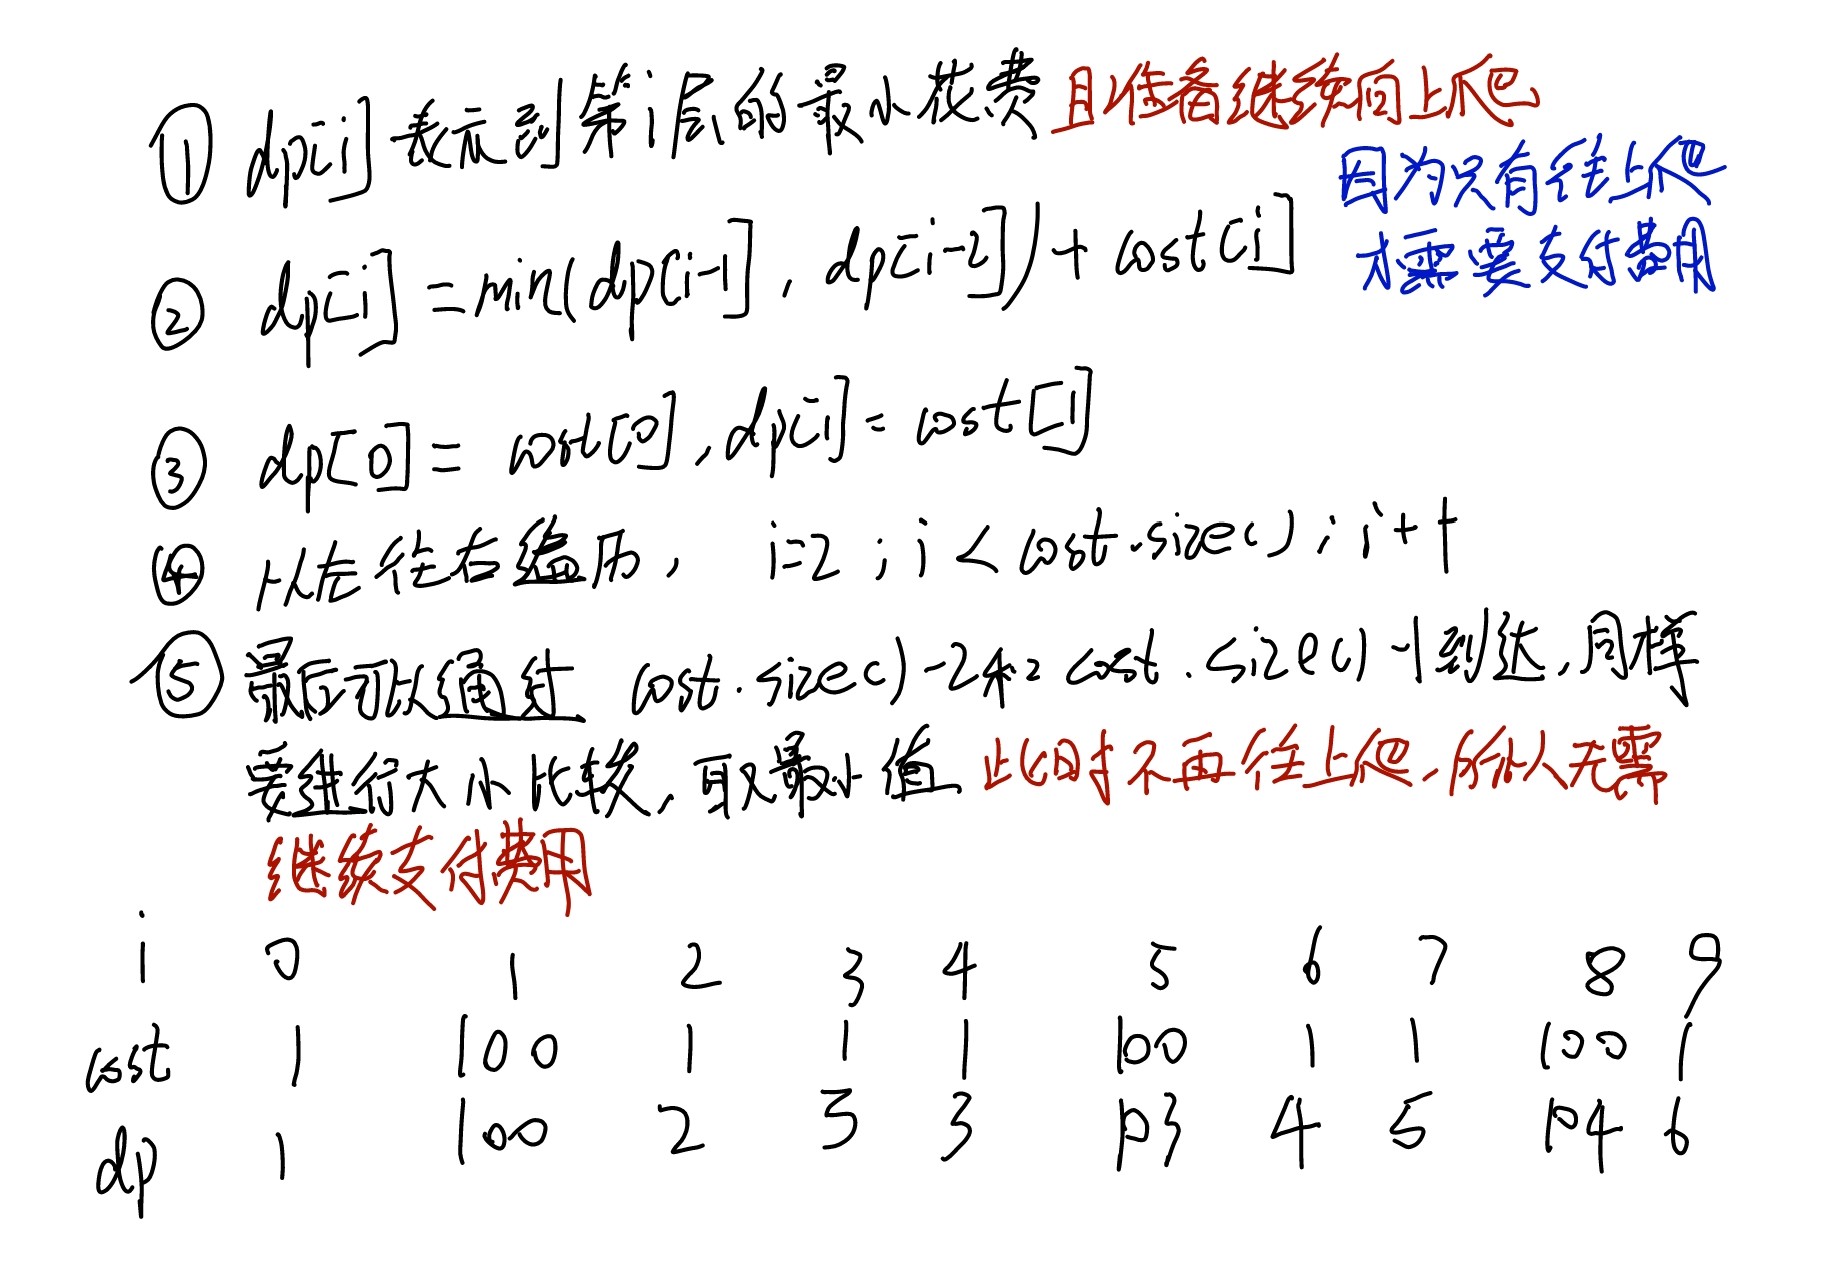 ① dp[i] 表示到第i层的最小花费 且准备继续向上爬
因为只有往上爬
才需要支付费用
② dp[i] = min(dp[i-1], dp[i-2]) + cost[i]
③ dp[0] = cost[0], dp[1] = cost[1]
④ 从左往右遍历, i=2 ; i < cost.size() ; i++
⑤ 最后可以通过 cost.size()-2和 cost.size()-1到达,同样
要进行大小比较,取最小值 此时不再往上爬,所以无需
继续支付费用
i 0 1 2 3 4 5 6 7 8 9
cost 1 100 1 1 1 100 1 1 100 1
dp 1 100 2 3 3 103 4 5 104 6